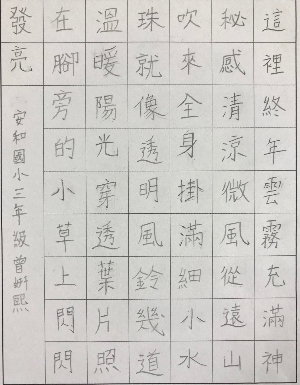 這裡終年雲霧充滿神
秘感清涼微風從遠山
吹來全身掛滿細小水
珠就像透明風鈴幾道
溫暖陽光穿透葉片照
在腳旁的小草上閃閃
發亮
安和國小三年級曾妍熙